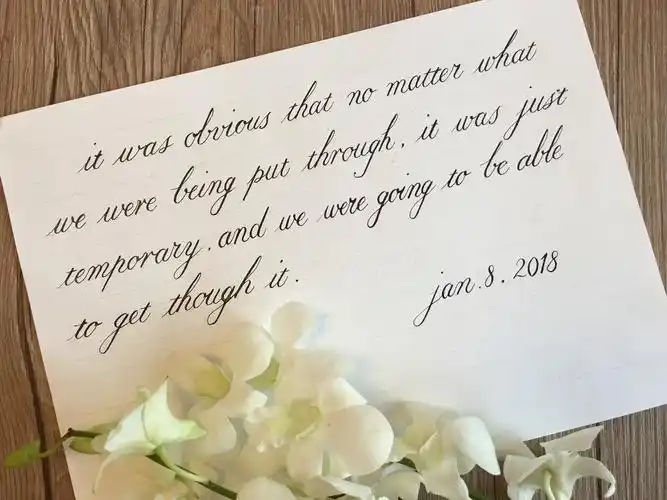 it was obvious that no matter what
we were being put through, it was just
temporary. and we were going to be able
to get though it.
jan. 8. 2018